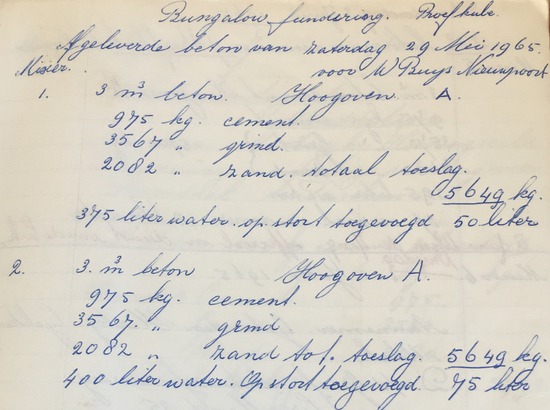 Bungalow fundering. Proefkube.
Afgeleverde beton van zaterdag 29 Mei 1965.
Mixer. voor W Buys Nieuwpoort
1. 3 m³ beton. Hoogoven A.
975 kg. cement.
3567 " grind.
2082 " zand. totaal toeslag.
5649 kg.
375 liter water. op stort toegevoegd 50 liter
2. 3. m³ beton Hoogoven A.
975 kg. cement.
3567. " grind
2082 " zand tot. toeslag. 5649 kg.
400 liter water. Op stort toegevoegd. 75 liter